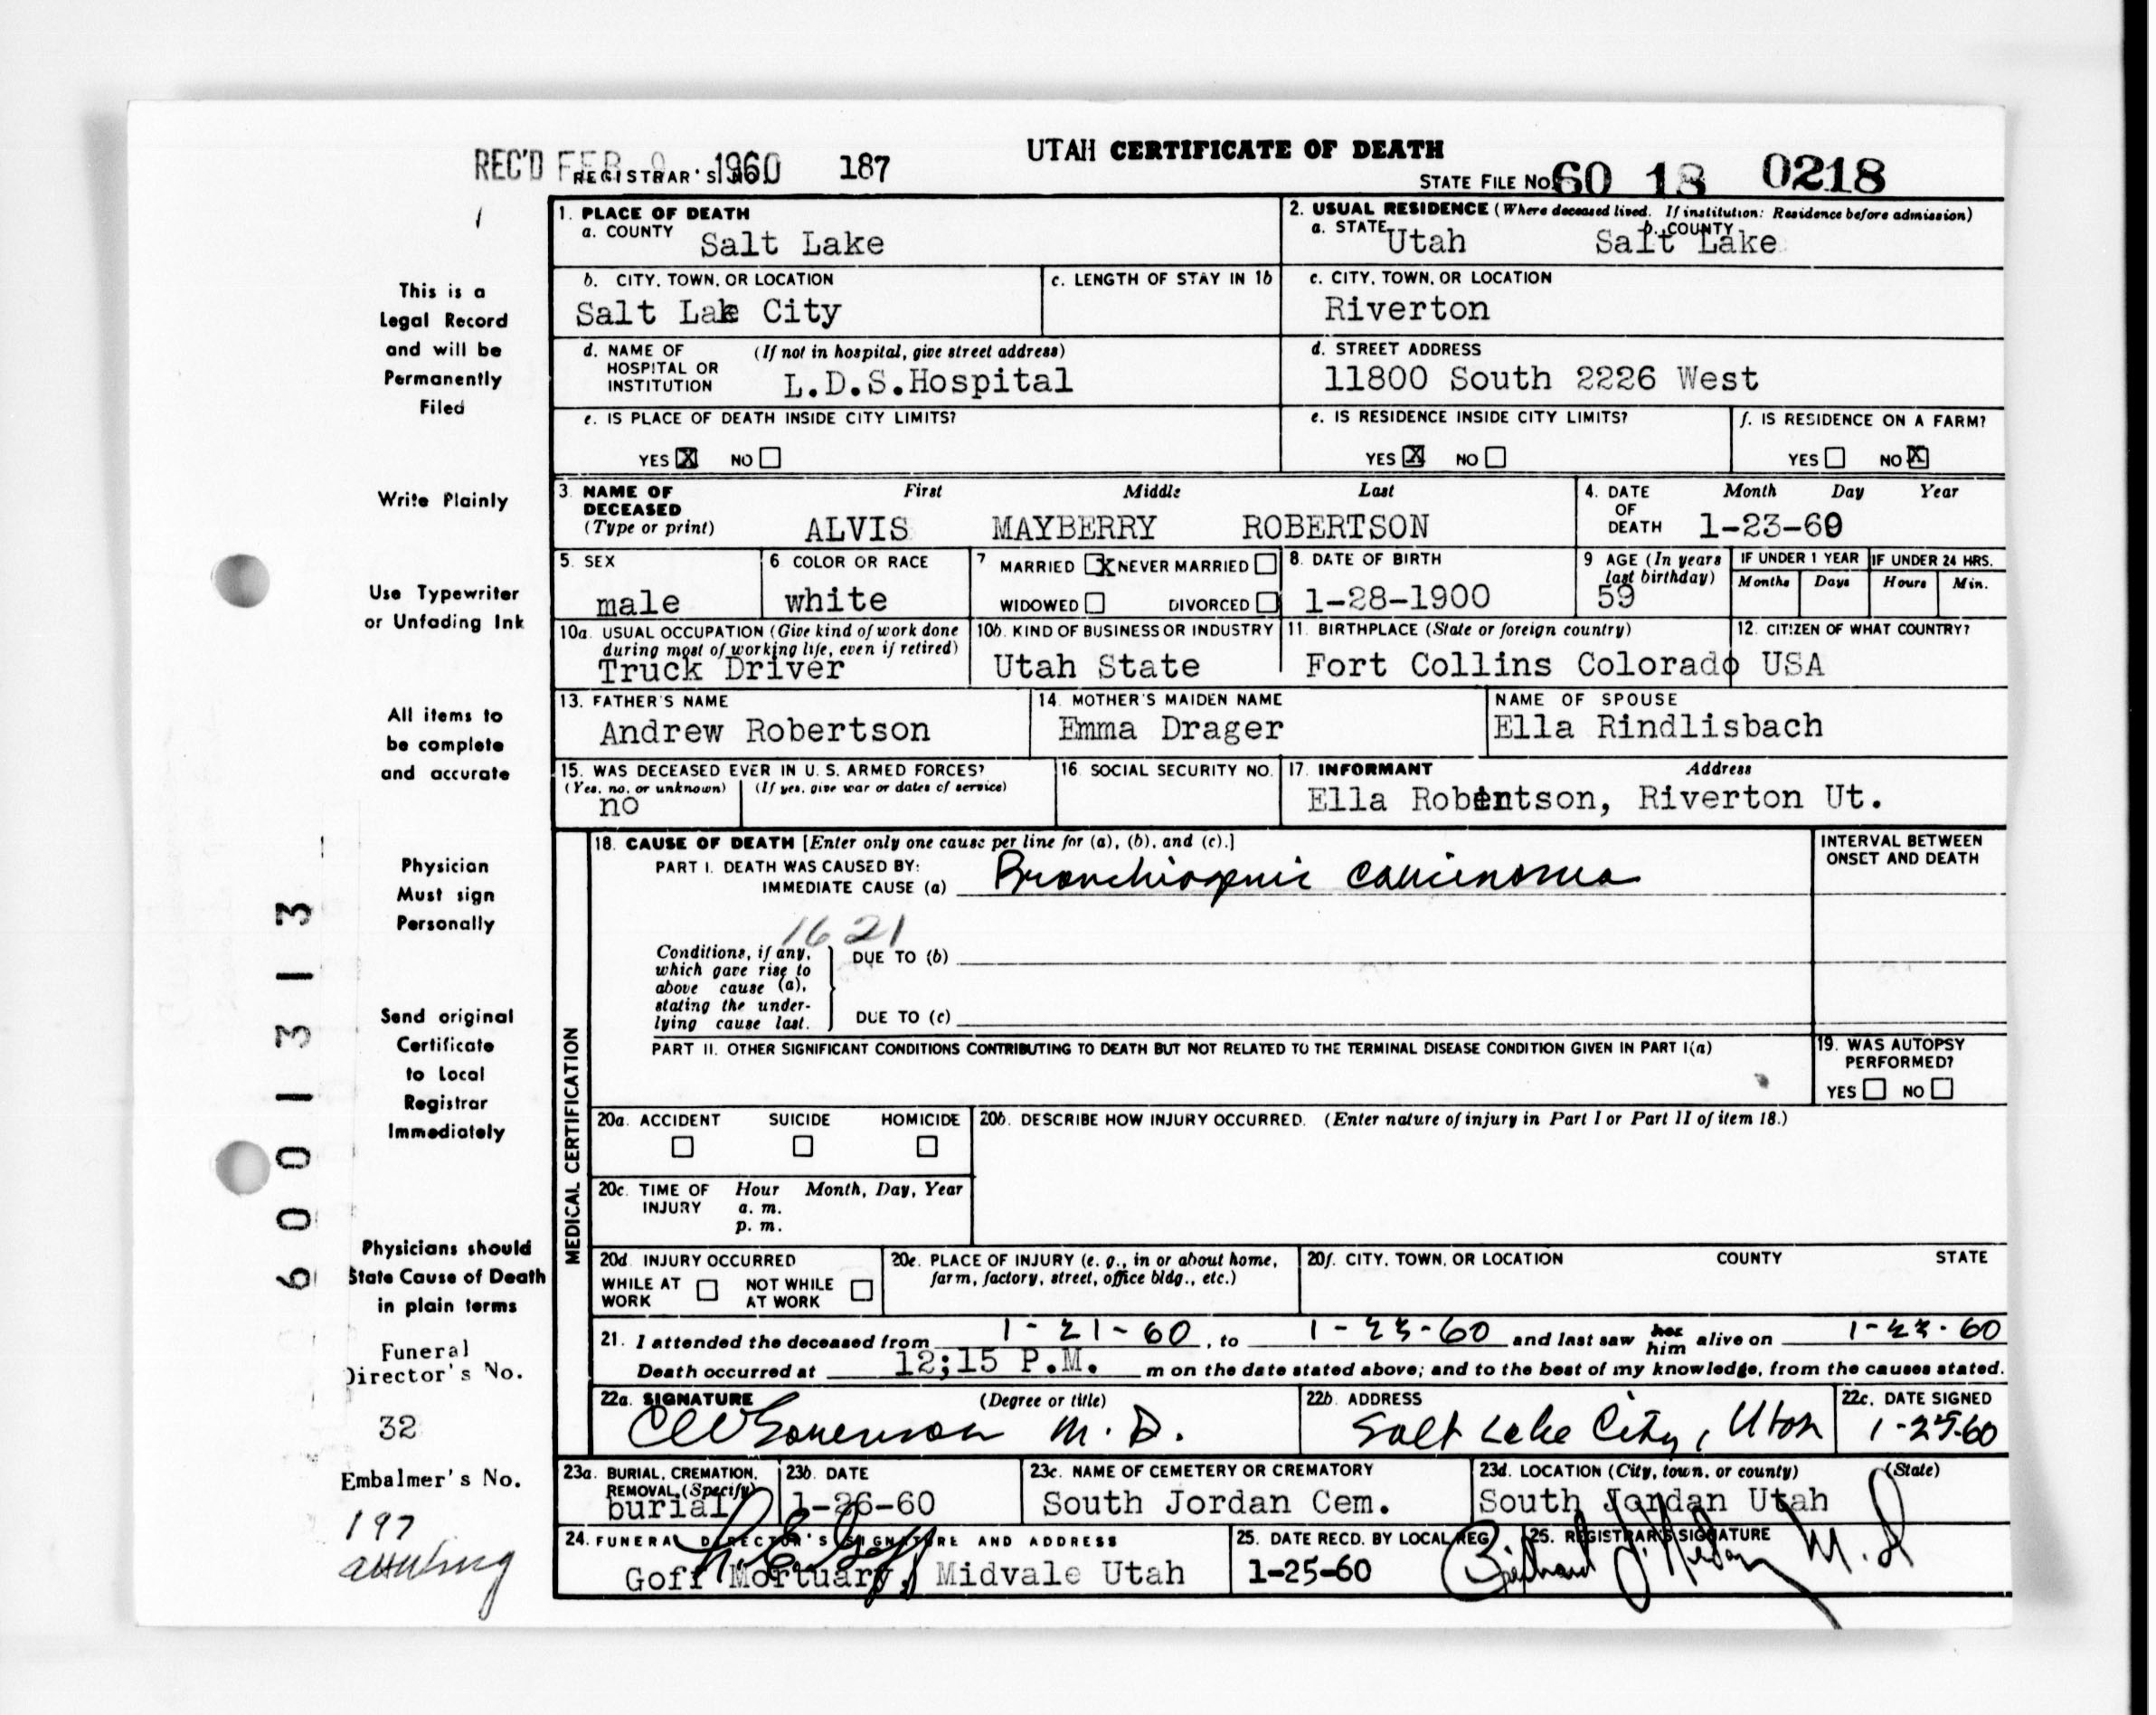 UTAH CERTIFICATE OF DEATH
REC'D FEB 1960 REGISTRAR'S 187
STATE FILE NO. 60 18 0218
1. PLACE OF DEATH
a. COUNTY Salt Lake
2. USUAL RESIDENCE (Where deceased lived. If institution: Residence before admission)
a. STATE Utah b. COUNTY Salt Lake
b. CITY, TOWN, OR LOCATION
Salt Lake City
c. LENGTH OF STAY IN 1b
c. CITY, TOWN, OR LOCATION
Riverton
d. NAME OF HOSPITAL OR INSTITUTION (If not in hospital, give street address)
L.D.S.Hospital
d. STREET ADDRESS
11800 South 2226 West
e. IS PLACE OF DEATH INSIDE CITY LIMITS?
YES X NO
e. IS RESIDENCE INSIDE CITY LIMITS?
YES X NO
f. IS RESIDENCE ON A FARM?
YES NO X
3. NAME OF DECEASED (Type or print)
First Middle Last
ALVIS MAYBERRY ROBERTSON
4. DATE OF DEATH Month Day Year
1-23-60
5. SEX
male
6 COLOR OR RACE
white
7 MARRIED X NEVER MARRIED
WIDOWED DIVORCED
8. DATE OF BIRTH
1-28-1900
9 AGE (In years last birthday)
59
IF UNDER 1 YEAR Months Days
IF UNDER 24 HRS. Hours Min.
10a. USUAL OCCUPATION (Give kind of work done during most of working life, even if retired)
Truck Driver
10b. KIND OF BUSINESS OR INDUSTRY
Utah State
11. BIRTHPLACE (State or foreign country)
Fort Collins Colorado
12. CITIZEN OF WHAT COUNTRY?
USA
13. FATHER'S NAME
Andrew Robertson
14. MOTHER'S MAIDEN NAME
Emma Drager
NAME OF SPOUSE
Ella Rindlisbach
15. WAS DECEASED EVER IN U. S. ARMED FORCES?
(Yes, no, or unknown) (If yes, give war or dates of service)
no
16. SOCIAL SECURITY NO.
17. INFORMANT Address
Ella Robertson, Riverton Ut.
MEDICAL CERTIFICATION
18. CAUSE OF DEATH [Enter only one cause per line for (a), (b), and (c).]
PART I. DEATH WAS CAUSED BY:
IMMEDIATE CAUSE (a) Bronchiogenic carcinoma
INTERVAL BETWEEN ONSET AND DEATH
1621
Conditions, if any, which gave rise to above cause (a), stating the underlying cause last.
DUE TO (b)
DUE TO (c)
PART II. OTHER SIGNIFICANT CONDITIONS CONTRIBUTING TO DEATH BUT NOT RELATED TO THE TERMINAL DISEASE CONDITION GIVEN IN PART I(a)
19. WAS AUTOPSY PERFORMED?
YES NO
20a. ACCIDENT SUICIDE HOMICIDE
20b. DESCRIBE HOW INJURY OCCURRED. (Enter nature of injury in Part I or Part II of item 18.)
20c. TIME OF INJURY Hour Month, Day, Year
a. m.
p. m.
20d. INJURY OCCURRED
WHILE AT WORK NOT WHILE AT WORK
20e. PLACE OF INJURY (e. g., in or about home, farm, factory, street, office bldg., etc.)
20f. CITY, TOWN, OR LOCATION COUNTY STATE
21. I attended the deceased from 1-21-60, to 1-23-60 and last saw her him alive on 1-23-60
Death occurred at 12;15 P.M. m on the date stated above; and to the best of my knowledge, from the causes stated.
22a. SIGNATURE (Degree or title)
CW Sorenson M.D.
22b. ADDRESS
Salt Lake City, Utah
22c. DATE SIGNED
1-25-60
23a. BURIAL, CREMATION, REMOVAL (Specify)
burial
23b. DATE
1-26-60
23c. NAME OF CEMETERY OR CREMATORY
South Jordan Cem.
23d. LOCATION (City, town, or county) (State)
South Jordan Utah
24. FUNERAL DIRECTOR'S SIGNATURE AND ADDRESS
Goff Mortuary, Midvale Utah
25. DATE RECD. BY LOCAL REG.
1-25-60
25. REGISTRAR'S SIGNATURE
M.D
This is a
Legal Record
and will be
Permanently
Filed
Write Plainly
Use Typewriter
or Unfading Ink
All items to
be complete
and accurate
Physician
Must sign
Personally
Send original
Certificate
to Local
Registrar
Immediately
Physicians should
State Cause of Death
in plain terms
Funeral
Director's No.
32
Embalmer's No.
197
6001313